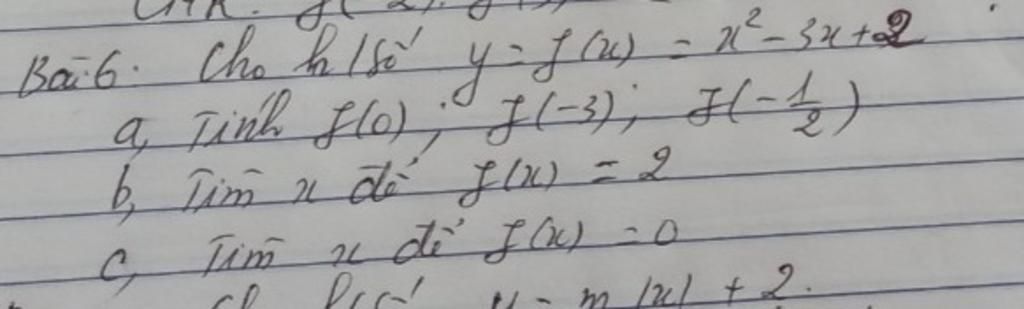 Bài 6. Cho h/số y = f(x) = x² - 3x + 2
a, Tính f(0); f(-3); f(-1/2)
b, Tìm x để f(x) = 2
c, Tìm x để f(x) = 0
y = m |x| + 2.